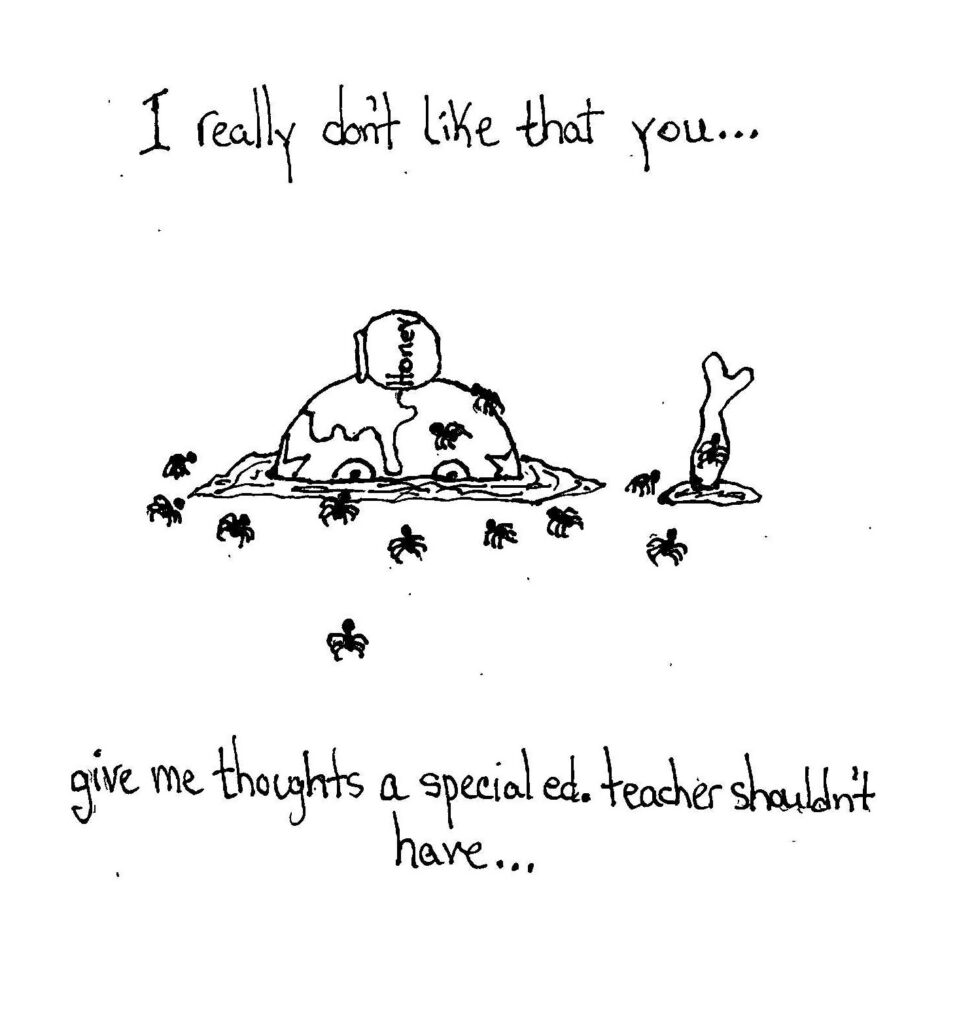 I really don't like that you...
Honey
give me thoughts a special ed. teacher shouldn't
have...